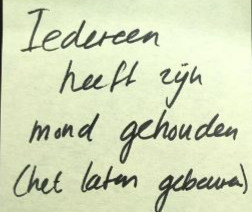 Iedereen
heeft zijn
mond gehouden
(het laten gebeuren)